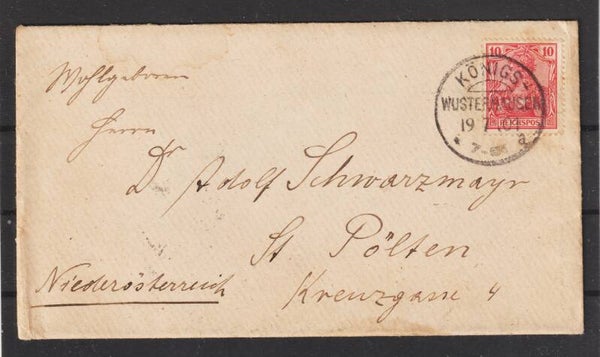 10 10
REICHSPOST
KÖNIGS-
WUSTERHAUSEN
19 7
7-8
Wohlgeboren
Herrn
Dr Adolf Schwarzmayr
St Pölten
Niederösterreich
Kreuzgasse 4